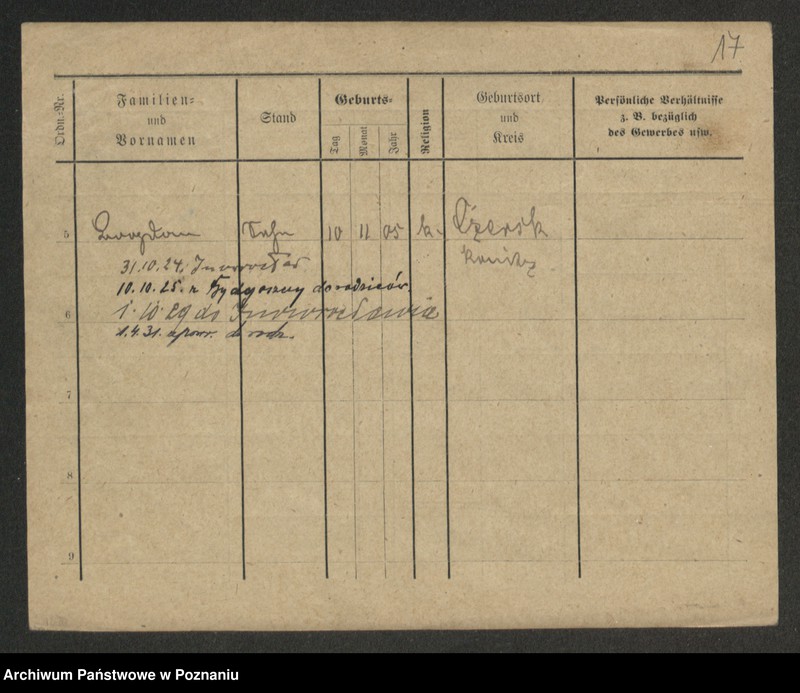 17
Ordn.-Nr.
Familien-
und
Vornamen
Stand
Geburts-
Tag
Monat
Jahr
Religion
Geburtsort
und
Kreis
Persönliche Verhältnisse
z. B. bezüglich
des Gewerbes usw.
5 Sohn 10 11 05 k. Czersk
31.10.24. Inowrocław
Konitz
10.10.25. z Bydgoszczy do rodziców.
6
1.10.29 do Inowrocławia
1.4.31. z powr. do rodz.
7
8
9
Archiwum Państwowe w Poznaniu